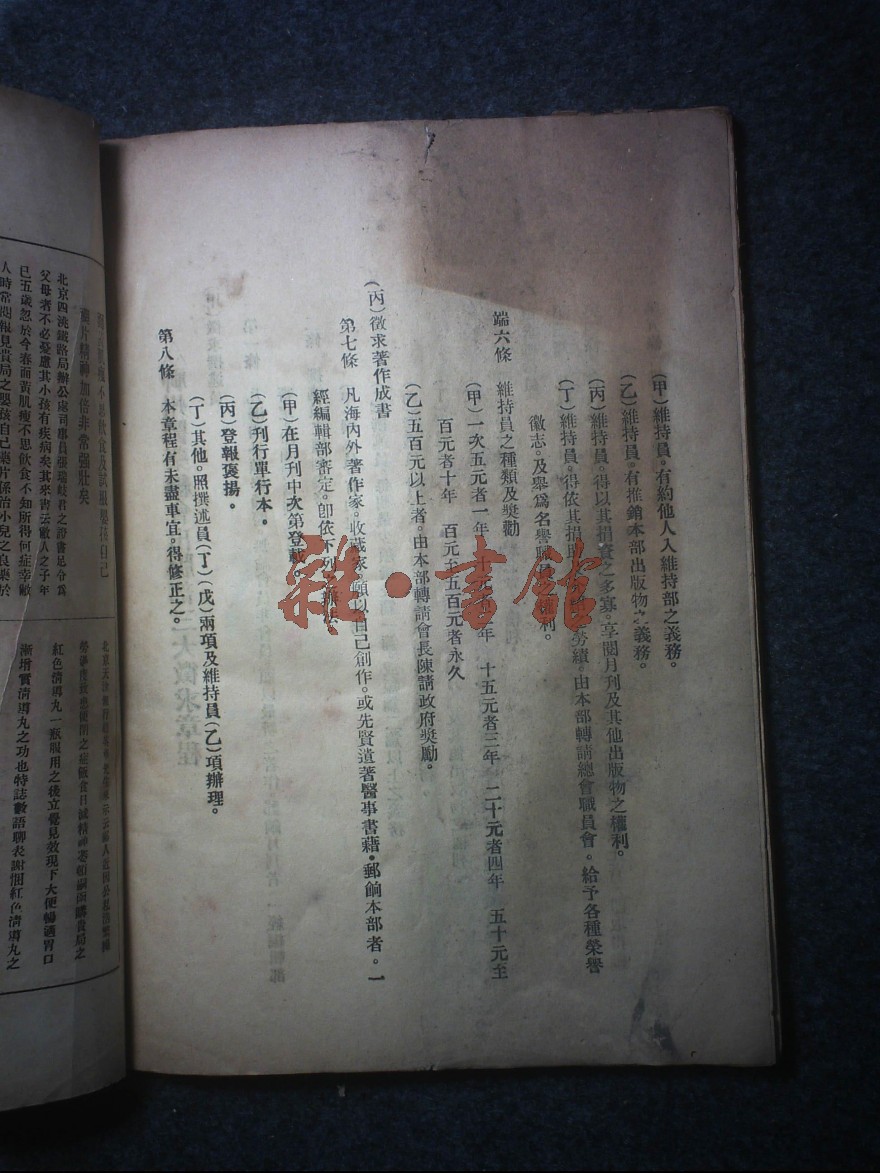 (甲)維持員。有約他人入維持部之義務。
(乙)維持員。有推銷本部出版物之義務。
(丙)維持員。得以其捐資之多寡。享閱月刊及其他出版物之權利。
(丁)維持員。得依其捐 勞績。由本部轉請總會職員會。給予各種榮譽
徽志。及舉爲名譽職員 權利。
端六條 維持員之種類及獎勸
(甲)一次五元者一年 十元者二年 十五元者三年 二十元者四年 五十元至
百元者十年 百元至五百元者永久
(乙)五百元以上者。由本部轉請會長陳請政府獎勵。
(丙)徵求著作成書
第七條 凡海內外著作家。收藏家。願以自己創作。或先賢遺著醫事書藉。郵餉本部者。一
經編輯部審定。卽依下列之辦法
(甲)在月刊中次第登載。
(乙)刊行單行本。
(丙)登報褒揚。
(丁)其他。照撰述員(丁)(戊)兩項及維持員(乙)項辦理。
第八條 本章程有未盡事宜。得修正之。
雜·書館
瘦不思飲食及試服嬰孩自己
藥片精神加倍非常強壯矣
北京四洮鐵路局辦公處司事員張瑞岐君之證書足令爲
父母者不必憂慮其小孩有疾病矣其來書云敝人之子年
已五歲忽於今春面黃肌瘦不思飲食不知所得何症幸敝
人時常閱報見貴局之嬰孩自己藥片係治小兒之良藥於
紅色清導丸一瓶服用之後立覺見效現下大便暢通胃口
漸增實清導丸之功也特誌數語聊表謝悃紅色清導丸之